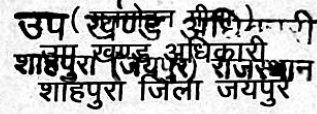 उप खण्ड अधिकारी
उप खण्ड अधिकारी
शाहपुरा (जयपुर) राजस्थान
शाहपुरा जिला जयपुर